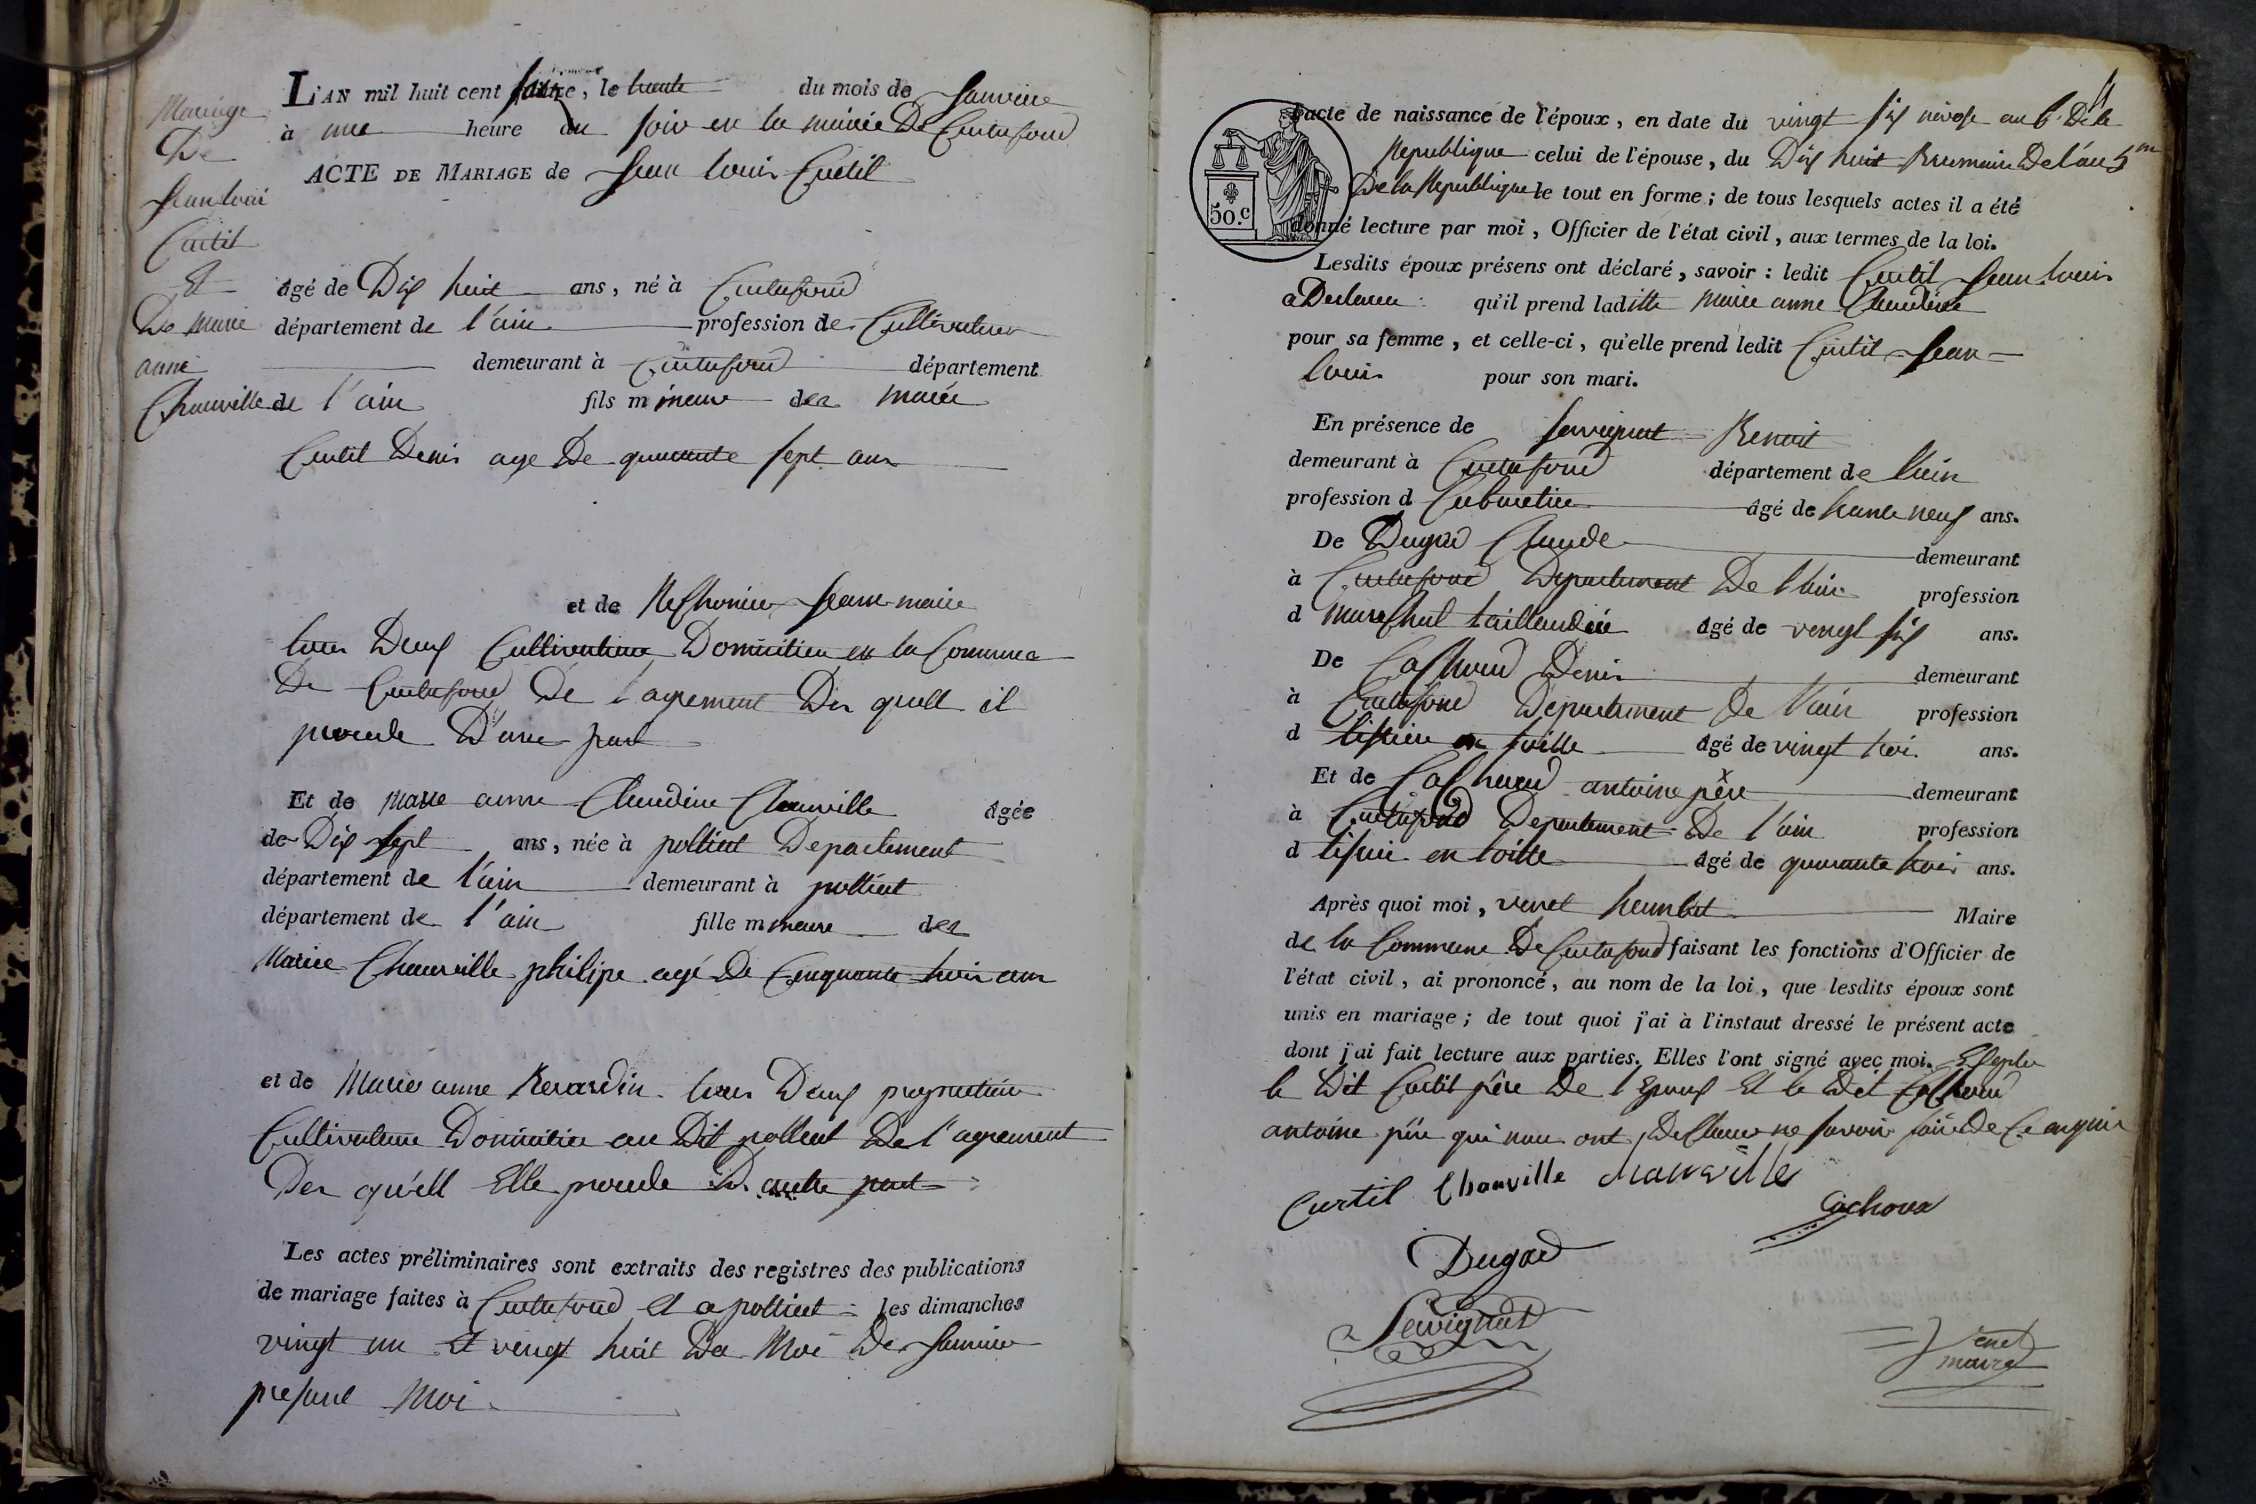 Mariage
De
Jean loui
Curtil
Et
De Marie
anne
Chauville
L'AN mil huit cent seize, le trente du mois de Janvier
à une heure du soir en la mairie De Curtafond
ACTE DE MARIAGE de Jean louis Curtil
âgé de Dix huit ans, né à Curtafond
département de l'ain profession de Cultivateur
demeurant à Curtafond département
de l'ain fils mineur des mariés
Curtil Denis age De quarante sept ans
et de Jeanne marie
tous Deux Cultivateurs Domicilies en la Commune
De Curtafond De l'agrement Des quell il
procede D'une part
Et de Marie anne Claudine Chauville âgée
de Dix sept ans, née à polliat Departement
département de l'ain demeurant à polliat
département de l'ain fille mineure des
Mariés Chauville philipe agé De Cinquante trois ans
et de Marie anne Revardin tous Deux proprietaires
Cultivateurs Domicilies au Dit polliat De l'agrement
Des qu'ell Elle procede D'autre part
Les actes préliminaires sont extraits des registres des publications
de mariage faites à Curtafond et a polliat les dimanches
vingt un et vingt huit Du Moi De Janvier
presant Moi
11
acte de naissance de l'époux, en date du vingt six nivose an 6 De la
Republique celui de l'épouse, du Dix huit Brumaire De l'an 5me
De la Republique le tout en forme; de tous lesquels actes il a été
donné lecture par moi, Officier de l'état civil, aux termes de la loi.
50.c
Lesdits époux présens ont déclaré, savoir : ledit Curtil Jean louis
a Declaree qu'il prend laditte Marie anne Claudine
pour sa femme, et celle-ci, qu'elle prend ledit Curtil Jean
louis pour son mari.
En présence de Sevignat Benoit
demeurant à Curtafond département de l'ain
profession d Cabaretier âgé de trante neuf ans.
De Dugad Claude demeurant
à Curtafond Departement De l'ain profession
d marechal taillandié âgé de vingt six ans.
De Cachoud Denis demeurant
à Curtafond Departement De l'ain profession
d tissier en toille âgé de vingt troi ans.
Et de Cachoud antoine père demeurant
à Curtafond Departement De l'ain profession
d tissier en toille âgé de quarante trois ans.
Après quoi moi, venet humbert Maire
de la Commune De Curtafond faisant les fonctions d'Officier de
l'état civil, ai prononcé, au nom de la loi, que lesdits époux sont
unis en mariage; de tout quoi j'ai à l'instaut dressé le présent acte
dont j'ai fait lecture aux parties. Elles l'ont signé avec moi.
le Dit Curtil père De l'Epoux Et le Dit Cachoud
antoine père qui nous ont Declaree ne savoir faire De Ce anquis
Curtil Chauville Chauville
Cachoud
Dugad
Sevignat
Venet
maire